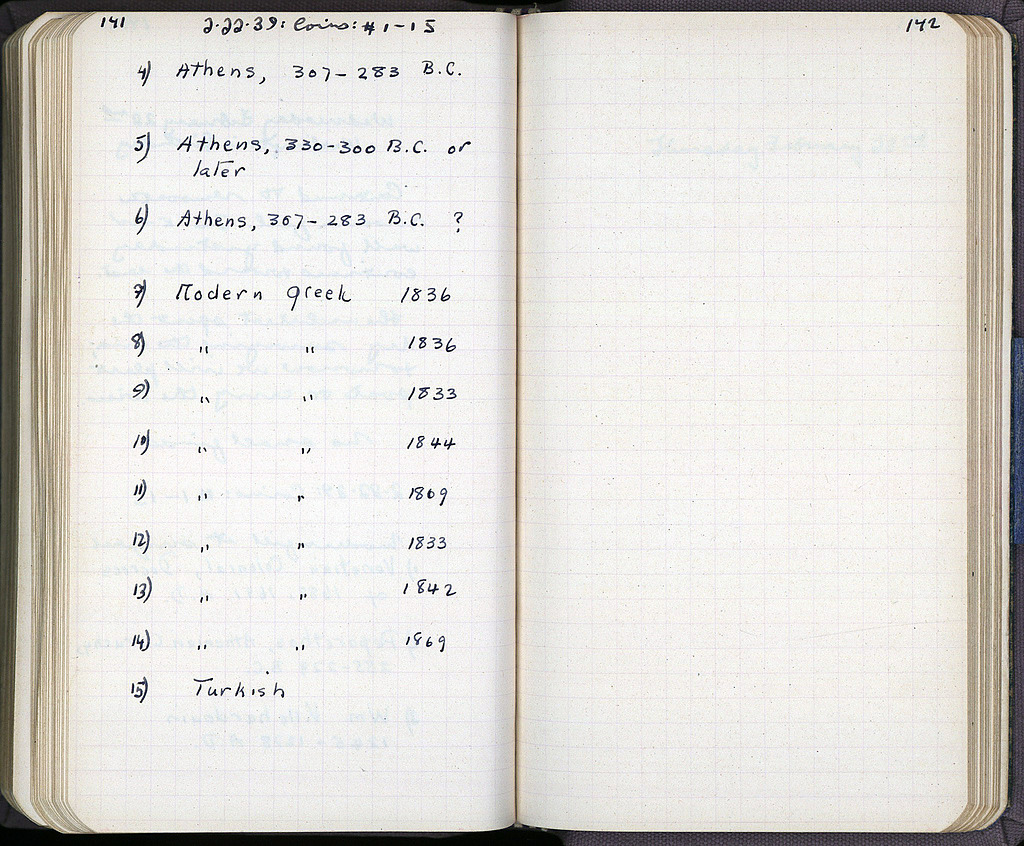 141
2·22·39: Coins: #1-15
4) Athens, 307-283 B.C.
5) Athens, 330-300 B.C. or
later
6) Athens, 307-283 B.C. ?
7) Modern Greek 1836
8) " " 1836
9) " " 1833
10) " " 1844
11) " " 1869
12) " " 1833
13) " " 1842
14) " " 1869
15) Turkish
142